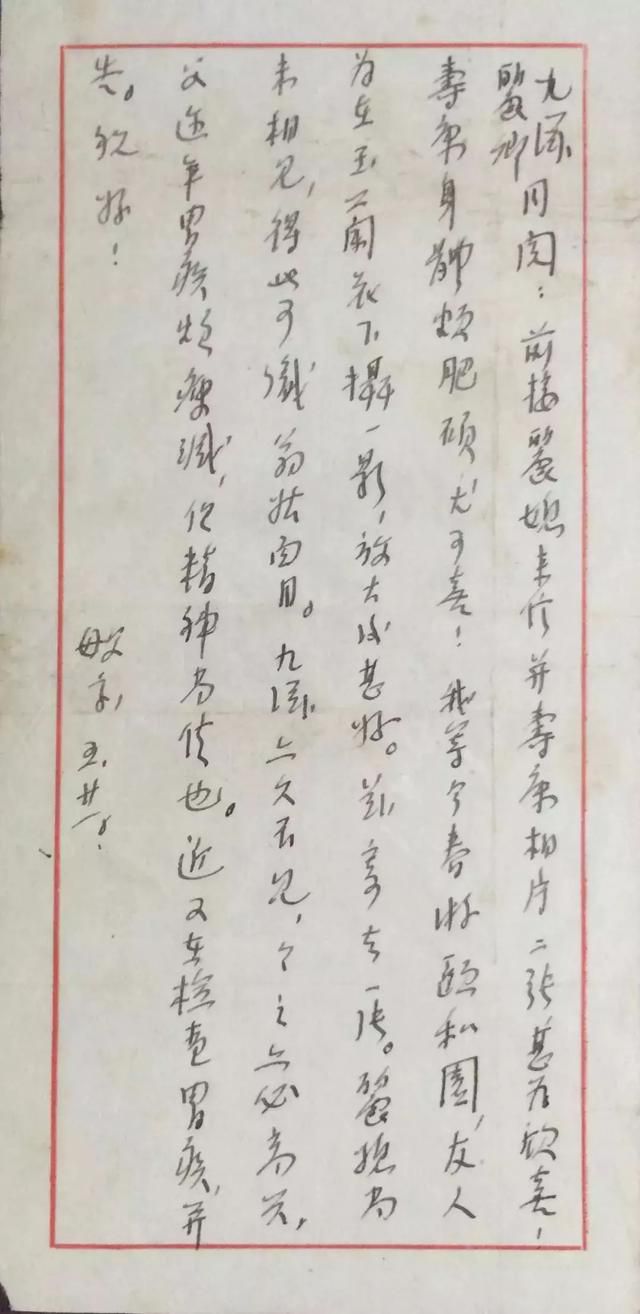 九涵
丽卿同阅：前接丽媳来信并寿康相片二张甚为欣喜！
寿康身体颇肥硕尤可喜！我等今春游颐和园，友人
为在玉兰前花下摄一影，放大后甚好。兹寄去一张。丽媳尚
未相见，得此可识翁姑面目。九涵亦久不见，今之亦必高兴，
父近年胃疾趋瘦减，但精神尚佳也。近又在检查胃疾，并
告。祝好！
母父字，五、廿一。